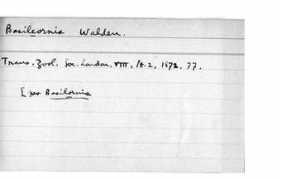 Basileornis Walden.
Trans. Zool. Soc. London, VIII, pt. 2, 1872, 77.
[ per Basilornis